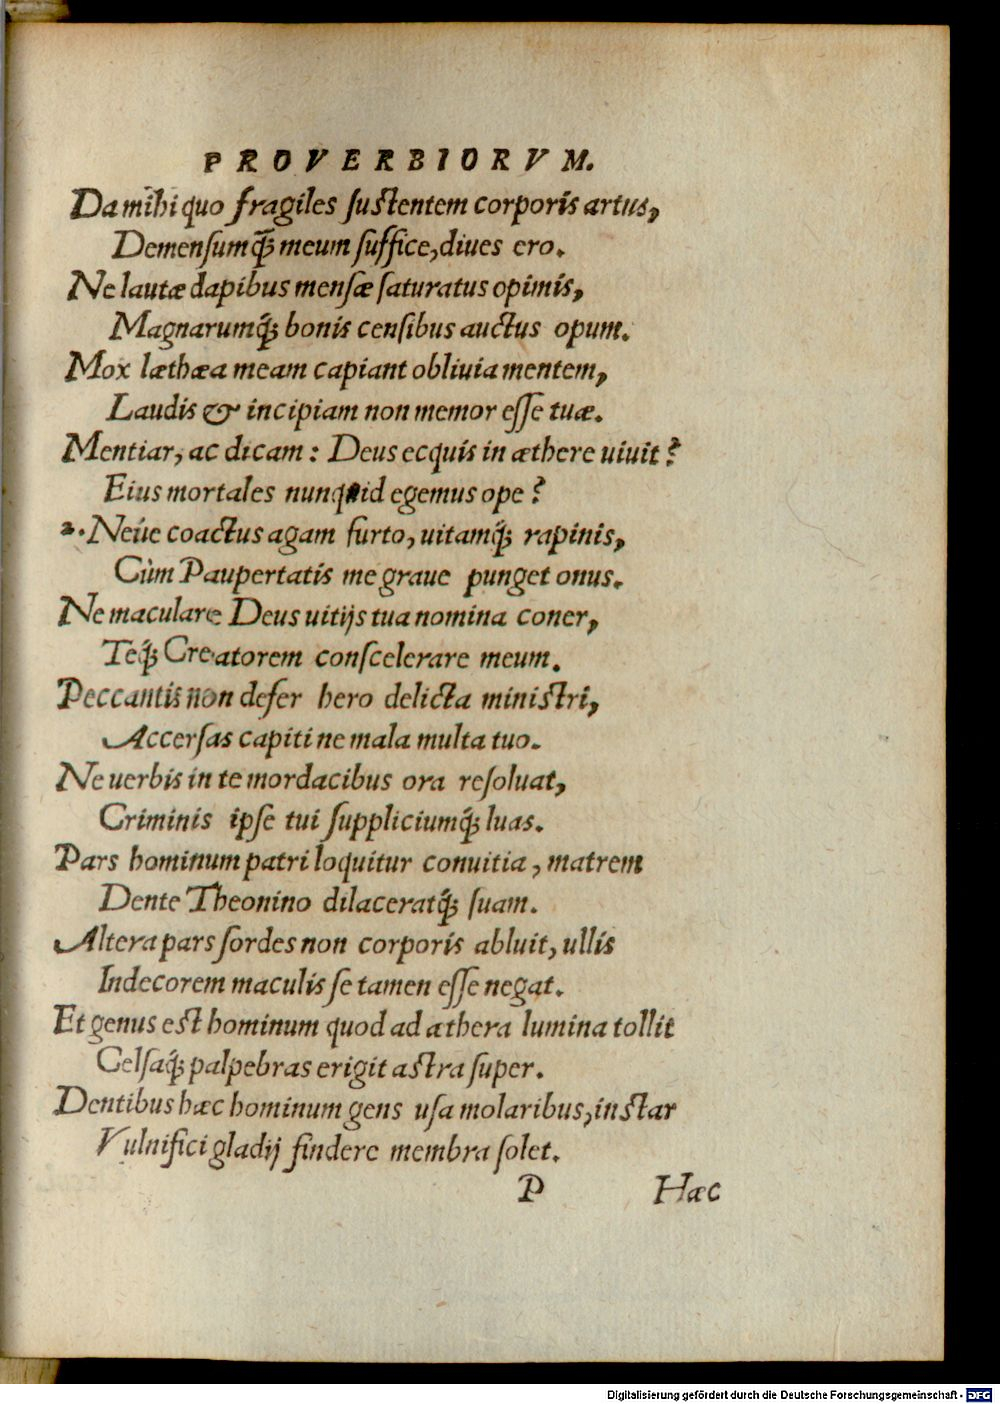 PROVERBIORVM.
Da mīhi quo fragiles ſuſtentem corporis artus,
Demenſumq́ꝫ meum ſuffice, diues ero.
Ne lautæ dapibus menſæ ſaturatus opimis,
Magnarumq́ꝫ bonis cenſibus auctus opum.
Mox læthæa meam capiant obliuia mentem,
Laudis & incipiam non memor eſſe tuæ.
Mentiar, ac dicam: Deus ecquis in æthere uiuit?
Eius mortales nunquid egemus ope?
2. Neúe coactus agam furto, uitamq́ꝫ rapinis,
Cùm Paupertatis me graue punget onus.
Ne maculare Deus uitijs tua nomina coner,
Teq́ꝫ Creatorem conſcelerare meum.
Peccantis non defer hero delicta miniſtri,
Accerſas capiti ne mala multa tuo.
Ne uerbis in te mordacibus ora reſoluat,
Criminis ipſe tui ſuppliciumq́ꝫ luas.
Pars hominum patri loquitur conuitia, matrem
Dente Theonino dilaceratq́ꝫ ſuam.
Altera pars ſordes non corporis abluit, ullis
Indecorem maculis ſe tamen eſſe negat.
Et genus eſt hominum quod ad æthera lumina tollit
Celſaq́ꝫ palpebras erigit aſtra ſuper.
Dentibus hæc hominum gens uſa molaribus, inſtar
Vulnifici gladij findere membra ſolet.
P Hæc
Digitalisierung gefördert durch die Deutsche Forschungsgemeinschaft - DFG